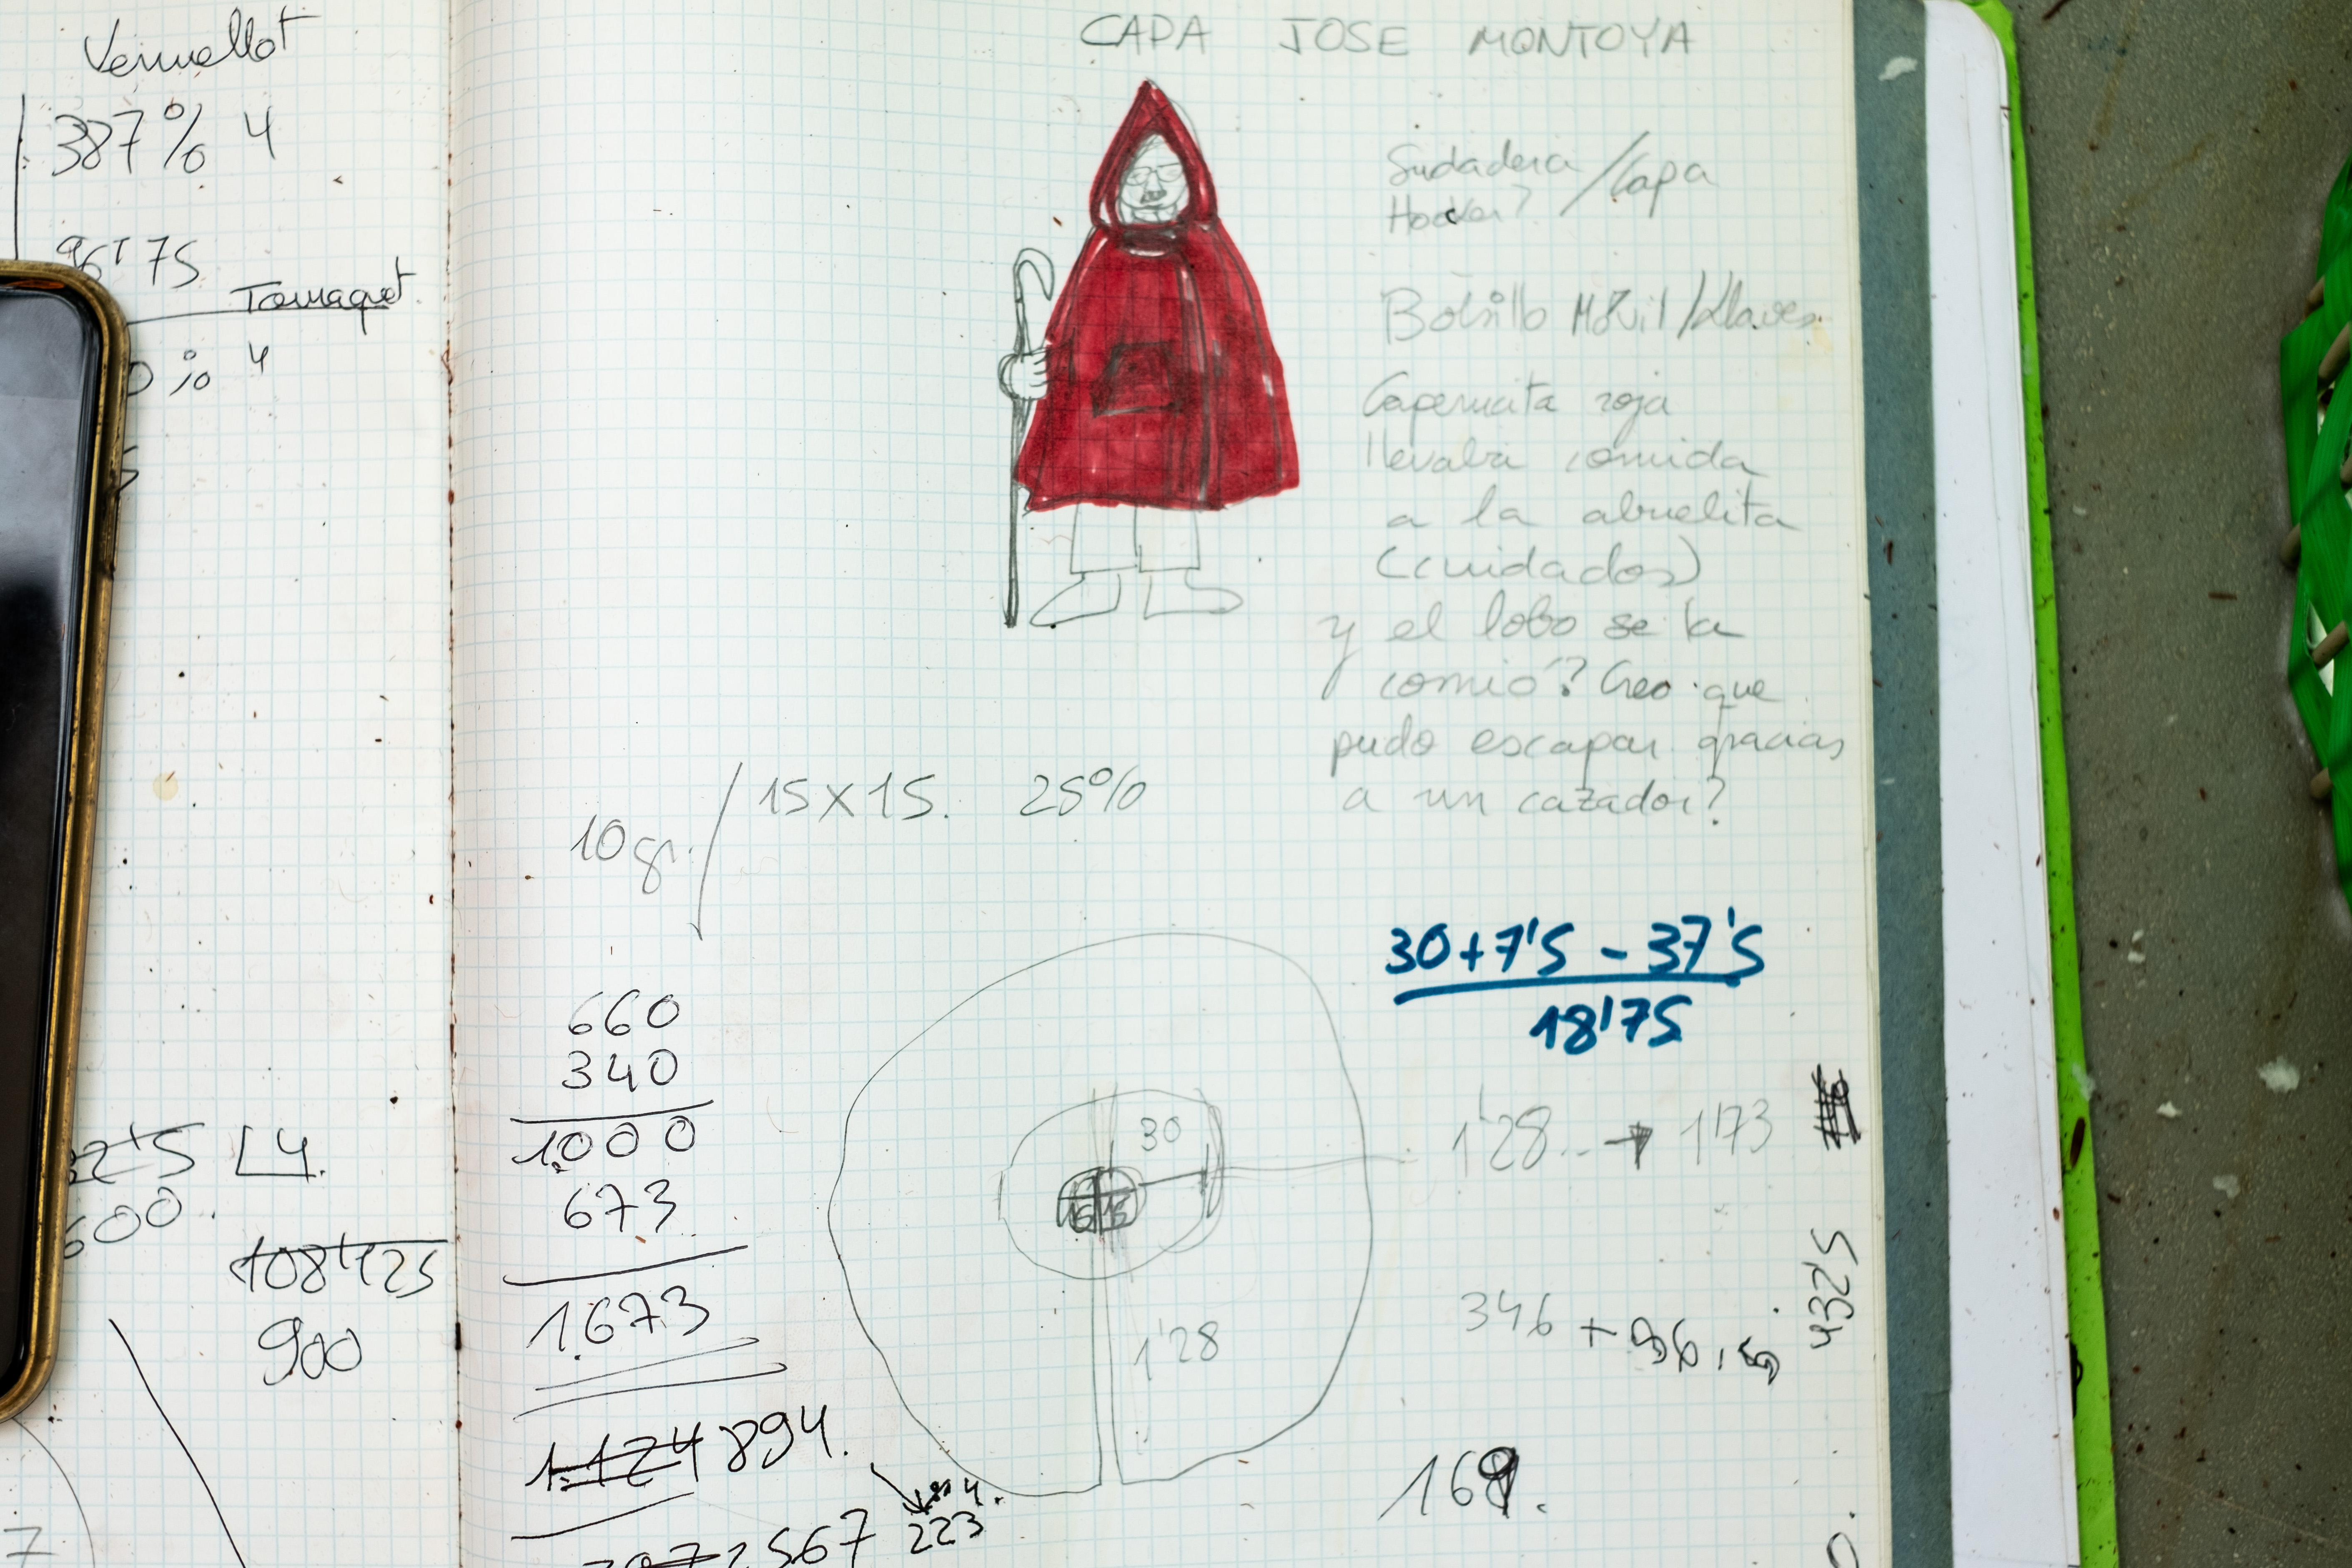 Vermellot
387% 4
96'75
Tomaquet
4
2'5 4.
600.
108'125
900
7
CAPA JOSE MONTOYA
Sudadera / Capa
Bolsillo Móvil / Llaves.
Caperucita roja
llevaba comida
a la abuelita
(cuidados)
y el lobo se la
comió? Creo que
pudo escapar gracias
a un cazador?
10gr. / 15x15. 25%
660
340
1.000
673
1.673
1.124 894.
223
2567
30+7'5 - 37'5
18'75
30
15 15
1'28
1'28.. → 1'73
346 + 86,5
4325
169.